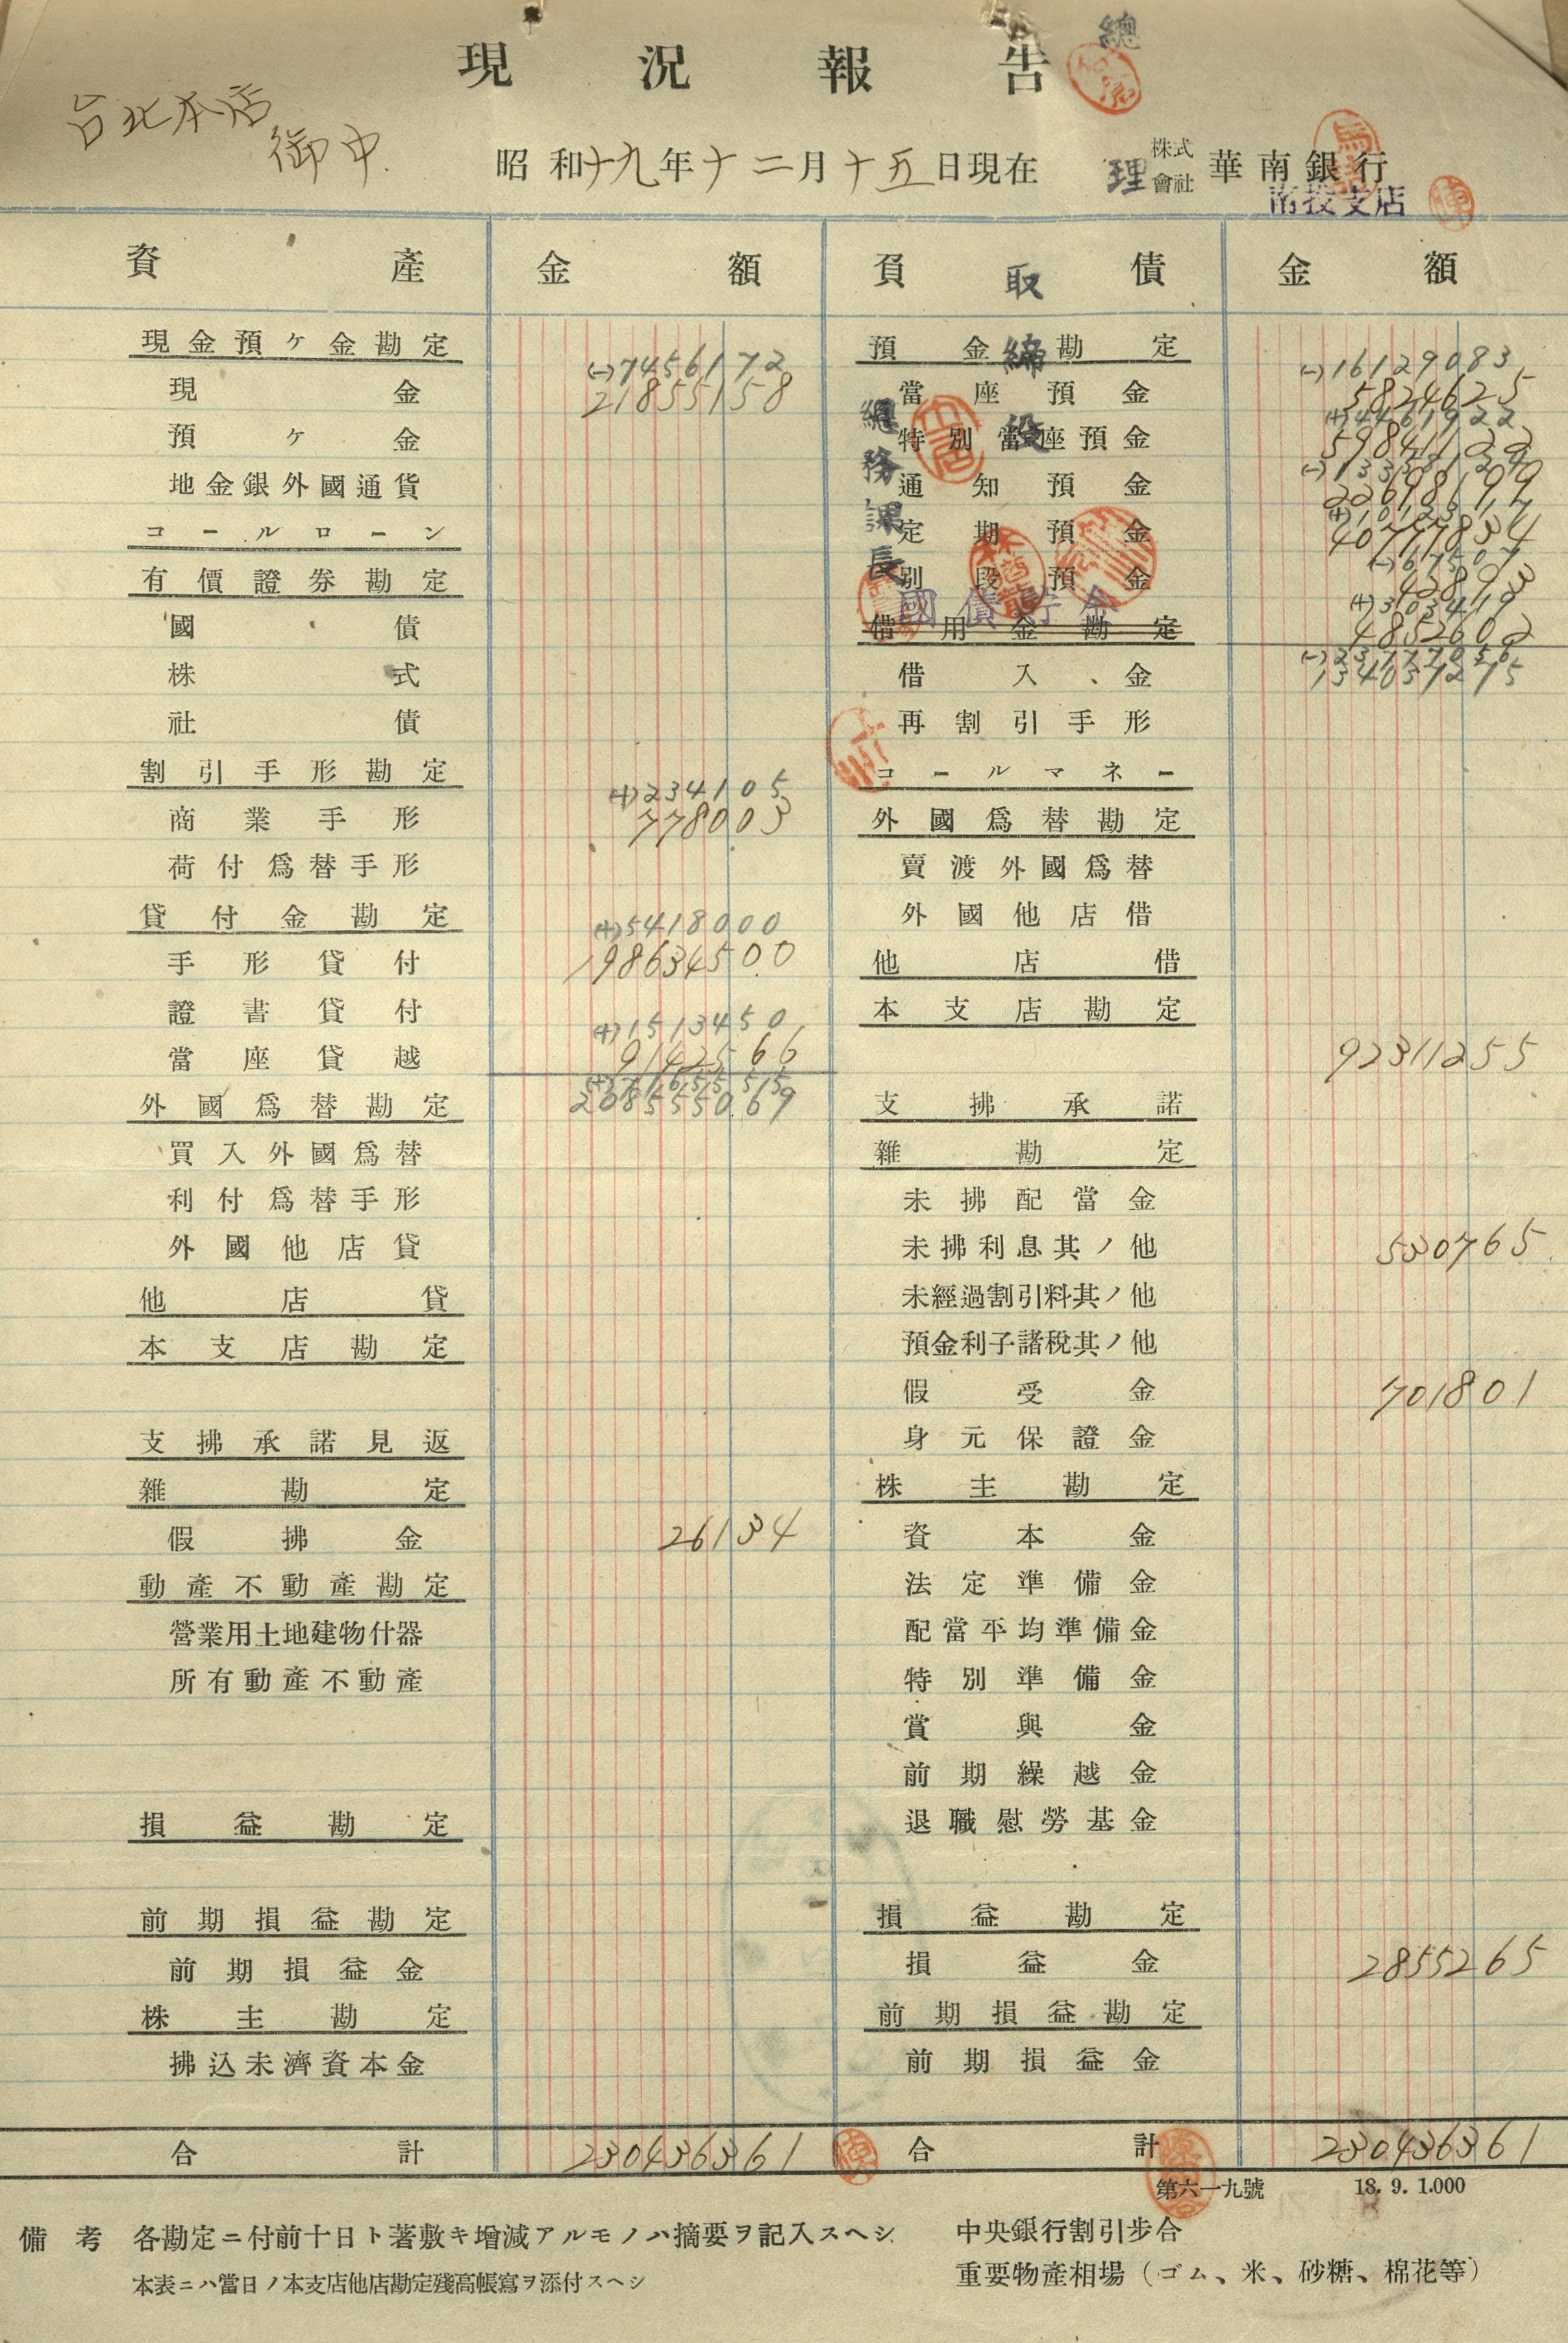 現況報告
總
台北本店
御中
昭和十九年十二月十五日現在
理
株式會社 華南銀行
南投支店
資產 金額 負債 金額
取締役
總務課長
現金預ヶ金勘定
(-)7456172
現金 21855158
預ヶ金
地金銀外國通貨
コールローン
有價證券勘定
國債
株式
社債
割引手形勘定
(+)234105
商業手形 778003
荷付爲替手形
貸付金勘定
(+)5418000
手形貸付 198634500
證書貸付
(+)1513450
當座貸越 9142566
外國爲替勘定
208555069
買入外國爲替
利付爲替手形
外國他店貸
他店貸
本支店勘定
支拂承諾見返
雜勘定
假拂金 26134
動產不動產勘定
營業用土地建物什器
所有動產不動產
損益勘定
前期損益勘定
前期損益金
株主勘定
拂込未濟資本金
合計 230436361
預金勘定
(-)16129083
當座預金 5824625
特別當座預金 59841122
通知預金 22698199
定期預金 40777834
別段預金 42893
國債貯金 4852602
借用金勘定
借入金 134037275
再割引手形
コールマネー
外國爲替勘定
賣渡外國爲替
外國他店借
他店借
本支店勘定
92311255
支拂承諾
雜勘定
未拂配當金
未拂利息其ノ他 530765
未經過割引料其ノ他
預金利子諸稅其ノ他
假受金 701801
身元保證金
株主勘定
資本金
法定準備金
配當平均準備金
特別準備金
賞與金
前期繰越金
退職慰勞基金
損益勘定
損益金 2855265
前期損益勘定
前期損益金
合計 230436361
第六一九號 18.9.1.000
備考 各勘定ニ付前十日ト著敷キ增減アルモノハ摘要ヲ記入スヘシ
本表ニハ當日ノ本支店他店勘定殘高帳寫ヲ添付スヘシ
中央銀行割引步合
重要物產相場（ゴム、米、砂糖、棉花等）